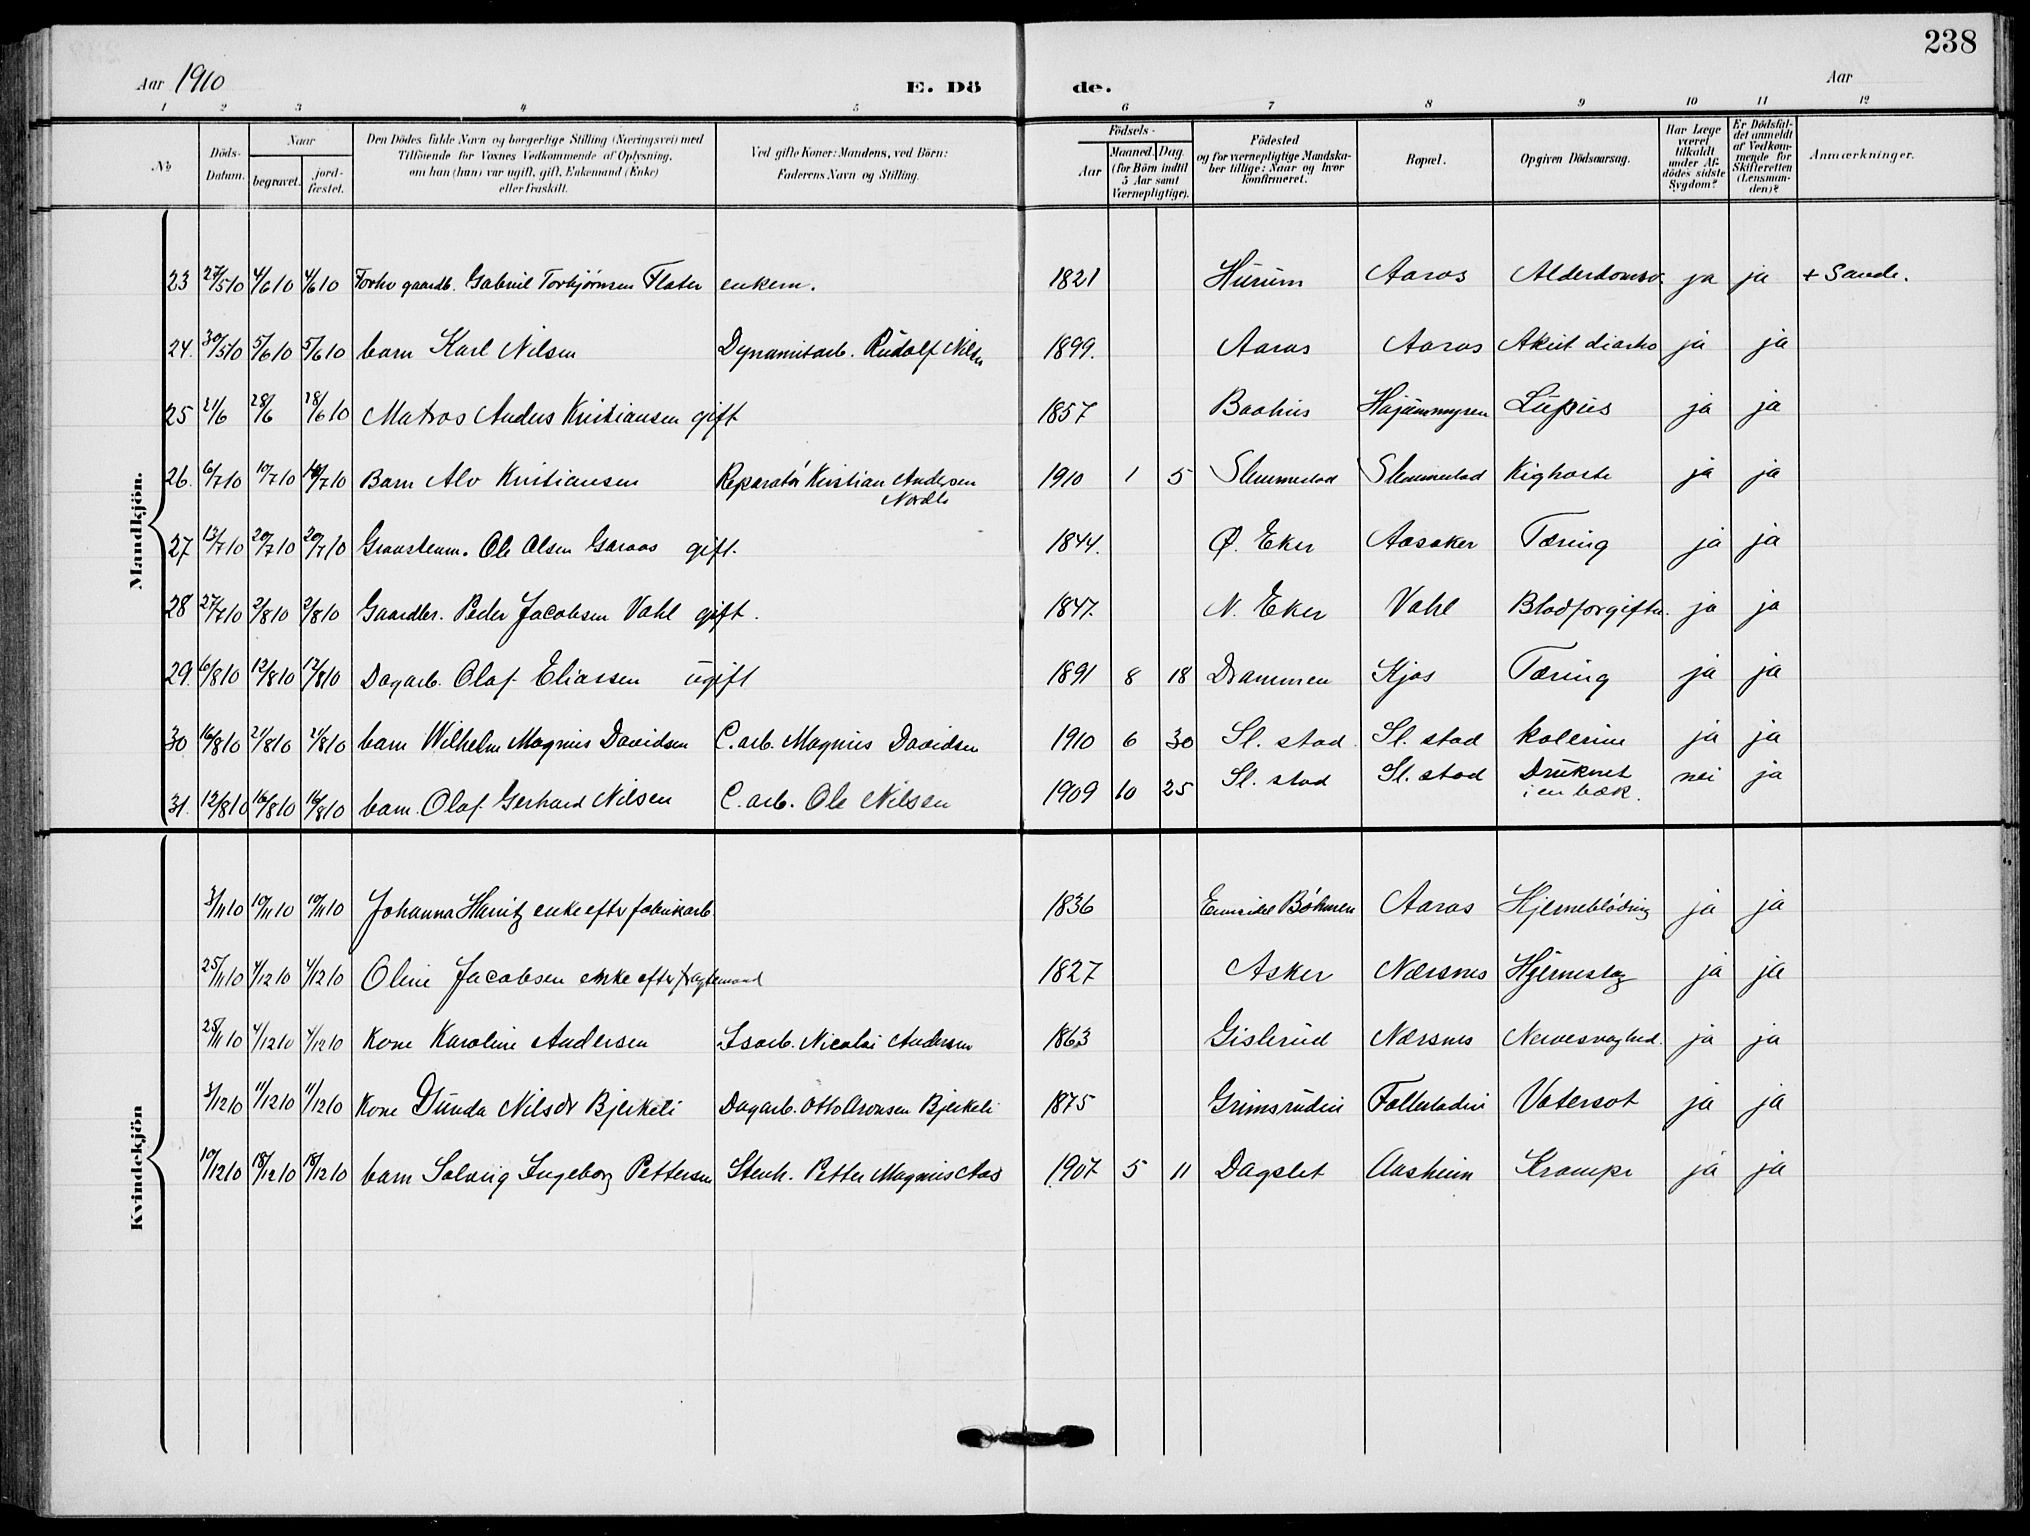 238
Aar 1910 E. Dö de. Aar
1 2 3 4 5 6 7 8 9 10 11 12
№
Döds-Datum.
Naar
begravet. jord-fæstet.
Den Dödes fulde Navn og borgerlige Stilling (Næringsvei) med
Tilföiende for Voxnes Vedkommende af Oplysning,
om han (hun) var ugift, gift, Enkemand (Enke)
eller fraskilt.
Ved gifte Koner: Mandens, ved Börn:
Faderens Navn og Stilling.
Födsels-
Aar
Maaned. Dag.
(for Börn indtil
5 Aar samt
Værnepligtige).
Födested
og for værnepligtige Mandska-
ber tillige: Naar og hvor
konfirmeret.
Bopæl.
Opgiven Dödsaarsag.
Har Læge
været
tilkaldt
under Af-
dödes sidste
Sygdom?
Er Dödsfal-
det anmeldt
af Vedkom-
mende for
Skifteretten
(Lensman-
den)?
Anmærkninger.
Mandkjön.
23 27/5 10 4/6 10 4/6 10 Forhv gaardb. Gabriel Torbjørnsen Flater enkem. 1821 Hurum Aaros Alderdomsv. ja ja + Sande.
24. 30/5 10 5/6 10 5/6 10 barn Karl Nilsen Dynamitarb. Rudolf Nilsen 1899. Aaros Aaros Akut diarho ja ja
25 21/6 28/6 28/6 10 Matros Anders Kristiansen gift 1857 Baahus Lupus ja ja
26. 6/7 10 10/7 10 10/7 10 Barn Alv Kristiansen Reparatör Kristian Andersen 1910 1 5 Slemmestad Slemmestad Kighoste ja ja
27 13/7 10 20/7 10 20/7 10 Ole Olsen Garaas gift. 1844. Ø. Eker Aasaker Tæring ja ja
28 27/7 10 2/8 10 2/8 10 Gaardbr. Peder Jacobsen Vahl gift. 1847. N. Eker Vahl Blodforgiftn. ja ja
29. 6/8 10 12/8 10 12/8 10 Dagarb. Olaf Eliassen ugift 1891 8 18 Drammen Kjos Tæring ja ja
30 16/8 10 21/8 10 21/8 10 barn Wilhelm Magnus Davidsen C. arb. Magnus Davidsen 1910 6 30 Sl. stad. Sl. stad kolerine ja ja
31. 12/8 10 16/8 10 16/8 10 barn. Olaf Gerhard Nilsen C. arb. Ole Nilsen 1909 10 25 Sl. stad Sl. stad Druknet nei ja
i en bæk.
Kvindekjön
3/11 10 10/11 10 10/11 10 Johanna enke efter fabrikarb. 1836 Böhmen Aaros Hjerneblödning ja ja
25/11 10 4/12 10 4/12 10 Oline Jacobsen enke efter fragtemand 1827 Asker Nærsnes Hjerneslag ja ja
25/11 10 4/12 10 4/12 10 Kone Karoline Andersen Isarb. Nicolai Andersen 1863 Gislerud Nærsnes Nervesvaghed. ja ja
3/12 10 11/12 10 11/12 10 Kone Gunda Nilsdr Bjerkeli Dagarb. Otto Aronsen Bjerkeli 1875 Grimsrudin Vatersot ja ja
10/12 10 18/12 10 18/12 10 barn Solveig Ingeborg Pettersen Stenh. Petter Magnus Aas 1907 5 11 Dagslet Aasheim Krampe ja ja